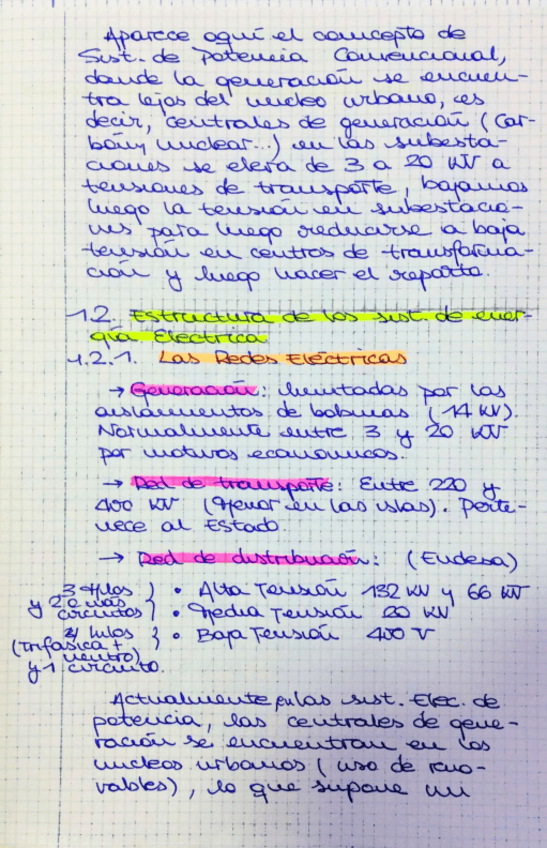 Aparece aquí el concepto de
Sist. de Potencia Convencional,
donde la generación se encuen-
tra lejos del nucleo urbano, es
decir, centrales de generación (Car-
bón y nuclear...) en las subesta-
ciones se eleva de 3 a 20 kV a
tensiones de transporte, bajamos
luego la tensión en subestacio-
nes para luego reducirse a baja
tensión en centros de transforma-
ción y luego hacer el reparto.
1.2. Estructura de los sist. de ener-
gía Electrica
1.2.1. Las Redes Eléctricas
→ Generación: limitadas por los
aislamientos de bobinas (14 kV).
Normalmente entre 3 y 20 kV
por motivos económicos.
→ Red de transporte: Entre 220 y
400 kV (Menor en las islas). Perte-
nece al Estado.
→ Red de distribución: (Endesa)
3 hilos } • Alta Tensión 132 kV y 66 kV
y 2 o más
circuitos } • Media Tensión 20 kV
4 hilos } • Baja Tensión 400 V
(Trifásica +
neutro)
y 1 circuito.
Actualmente en los sist. Elec. de
potencia, las centrales de gene-
ración se encuentran en los
nucleos urbanos (uso de reno-
vables), lo que supone un